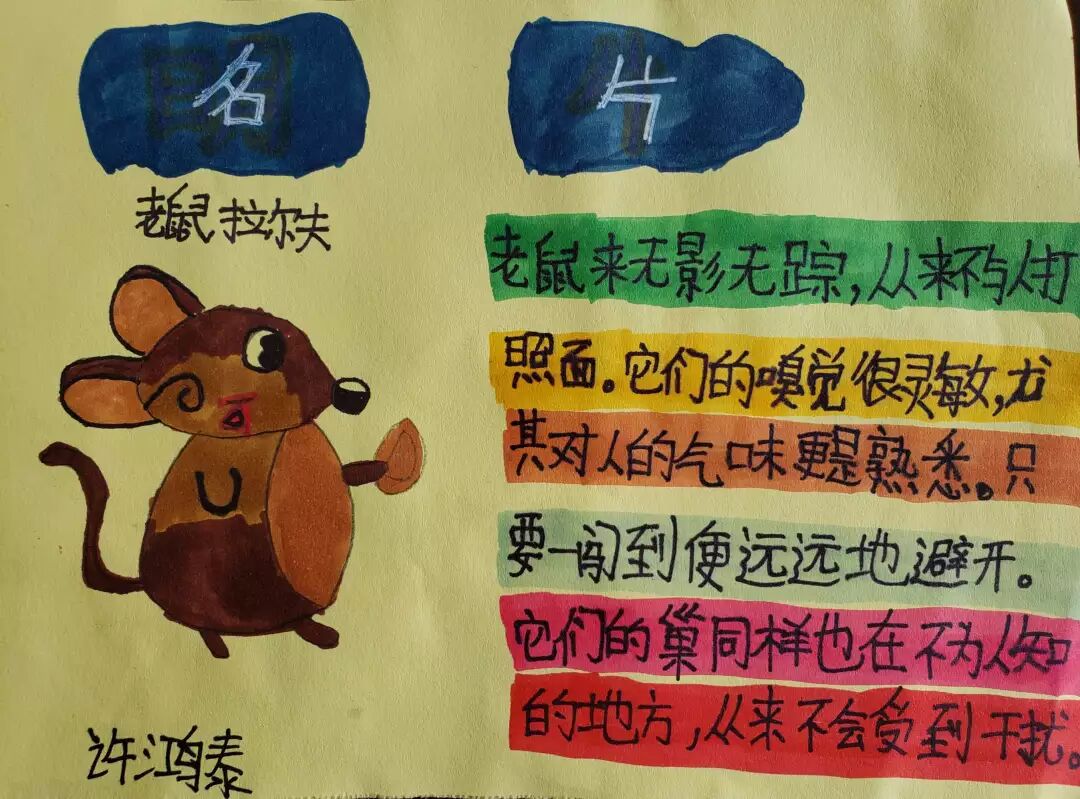 名片
老鼠拉尔夫
老鼠来无影无踪,从来不与人打
照面。它们的嗅觉很灵敏,尤
其对人的气味更是熟悉。只
要一闻到便远远地避开。
它们的巢同样也在不为人知
的地方,从来不会受到干扰。
许鸿泰